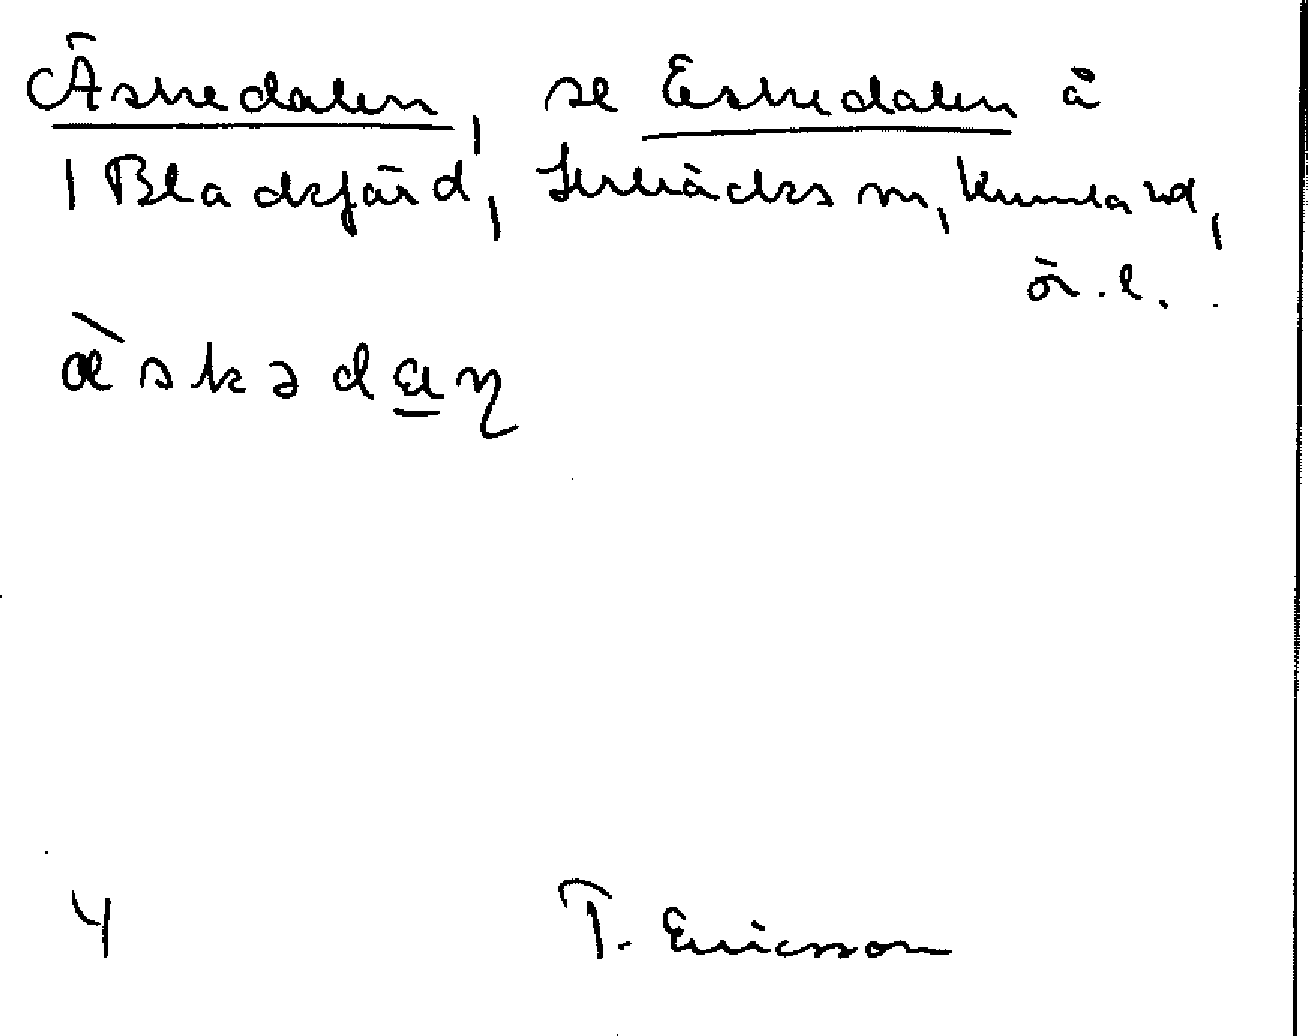 Äskedalen, se Eskedalen å
Bladkfjärd, Hulbäcks m, Kumla sd,
ö. l.
æ̀skədaη
4 T. Ericsson